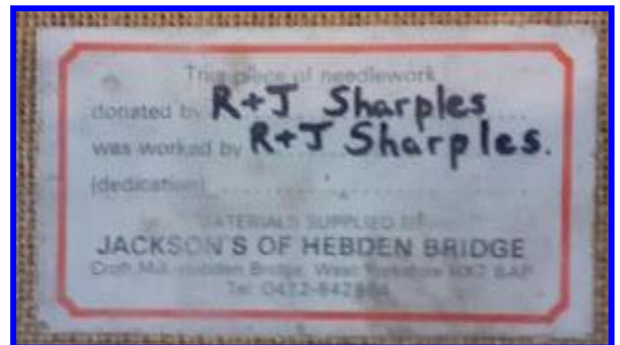 This piece of needlework
donated by R+J Sharples
was worked by R+J Sharples.
(dedication)
MATERIALS SUPPLIED BY
JACKSON'S OF HEBDEN BRIDGE
Croft Mill, Hebden Bridge, West Yorkshire HX7 8AP
Tel: